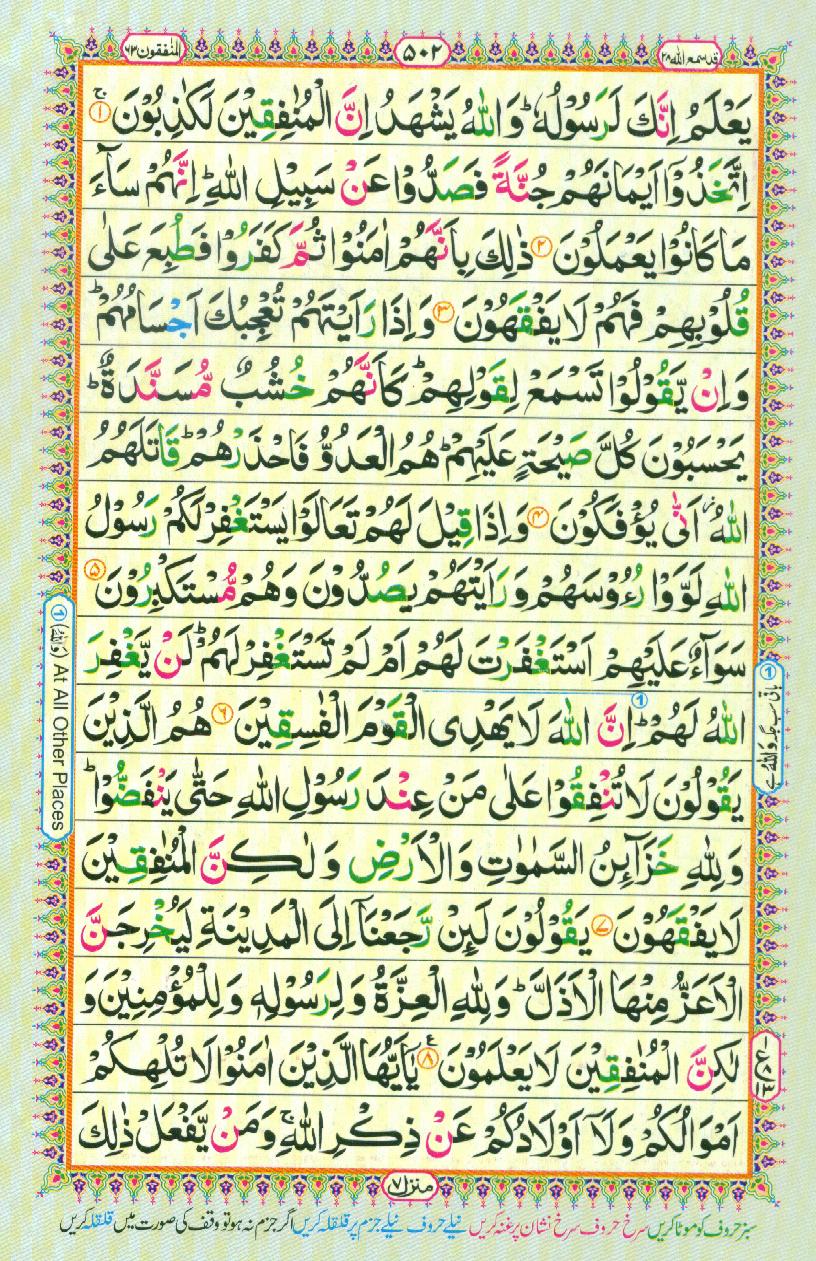 قد سمع الله ۲۸
۵۰۲
المنٰفقون ۶۳
يَعْلَمُ اِنَّكَ لَرَسُوْلُهٗ ؕ وَاللّٰهُ يَشْهَدُ اِنَّ الْمُنٰفِقِيْنَ لَكٰذِبُوْنَ ۚ ۱
اِتَّخَذُوْۤا اَيْمَانَهُمْ جُنَّةً فَصَدُّوْا عَنْ سَبِيْلِ اللّٰهِ ؕ اِنَّهُمْ سَآءَ
مَا كَانُوْا يَعْمَلُوْنَ ۲ ذٰلِكَ بِاَنَّهُمْ اٰمَنُوْا ثُمَّ كَفَرُوْا فَطُبِعَ عَلٰى
قُلُوْبِهِمْ فَهُمْ لَا يَفْقَهُوْنَ ۳ وَاِذَا رَاَيْتَهُمْ تُعْجِبُكَ اَجْسَامُهُمْ ؕ
وَاِنْ يَّقُوْلُوْا تَسْمَعْ لِقَوْلِهِمْ ؕ كَاَنَّهُمْ خُشُبٌ مُّسَنَّدَةٌ ؕ
يَحْسَبُوْنَ كُلَّ صَيْحَةٍ عَلَيْهِمْ ؕ هُمُ الْعَدُوُّ فَاحْذَرْهُمْ ؕ قَاتَلَهُمُ
اللّٰهُ ؗ اَنّٰى يُؤْفَكُوْنَ ۴ وَاِذَا قِيْلَ لَهُمْ تَعَالَوْا يَسْتَغْفِرْ لَكُمْ رَسُوْلُ
اللّٰهِ لَوَّوْا رُءُوْسَهُمْ وَرَاَيْتَهُمْ يَصُدُّوْنَ وَهُمْ مُّسْتَكْبِرُوْنَ ۵
سَوَآءٌ عَلَيْهِمْ اَسْتَغْفَرْتَ لَهُمْ اَمْ لَمْ تَسْتَغْفِرْ لَهُمْ ؕ لَنْ يَّغْفِرَ
اللّٰهُ لَهُمْ ؕ اِنَّ اللّٰهَ لَا يَهْدِى الْقَوْمَ الْفٰسِقِيْنَ ۶ هُمُ الَّذِيْنَ
يَقُوْلُوْنَ لَا تُنْفِقُوْا عَلٰى مَنْ عِنْدَ رَسُوْلِ اللّٰهِ حَتّٰى يَنْفَضُّوْا ؕ
وَلِلّٰهِ خَزَآئِنُ السَّمٰوٰتِ وَالْاَرْضِ وَلٰكِنَّ الْمُنٰفِقِيْنَ
لَا يَفْقَهُوْنَ ۷ يَقُوْلُوْنَ لَئِنْ رَّجَعْنَاۤ اِلَى الْمَدِيْنَةِ لَيُخْرِجَنَّ
الْاَعَزُّ مِنْهَا الْاَذَلَّ ؕ وَلِلّٰهِ الْعِزَّةُ وَلِرَسُوْلِهٖ وَلِلْمُؤْمِنِيْنَ وَ
لٰكِنَّ الْمُنٰفِقِيْنَ لَا يَعْلَمُوْنَ ۸ يٰۤاَيُّهَا الَّذِيْنَ اٰمَنُوْا لَا تُلْهِكُمْ
اَمْوَالُكُمْ وَلَاۤ اَوْلَادُكُمْ عَنْ ذِكْرِ اللّٰهِ ۚ وَمَنْ يَّفْعَلْ ذٰلِكَ
① (وَاللّٰهُ) At All Other Places
منزل ۷
سبز حروف کو موٹا کریں سرخ حروف سرخ نشان پر غنہ کریں نیلے حروف نیلے جزم پر قلقلہ کریں اگر جزم نہ ہو تو وقف کی صورت میں قلقلہ کریں